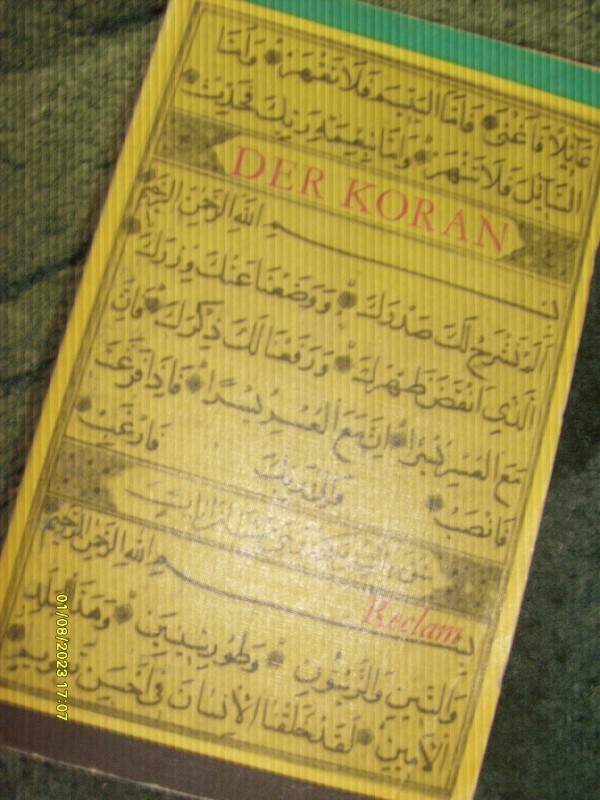 عَآئِلًا فَاَغْنٰى ۞ فَاَمَّا الْيَتِيْمَ فَلَا تَقْهَرْ ۞ وَاَمَّا
السَّآئِلَ فَلَا تَنْهَرْ ۞ وَاَمَّا بِنِعْمَةِ رَبِّكَ فَحَدِّثْ ۞
DER KORAN
بِسْمِ اللّٰهِ الرَّحْمٰنِ الرَّحِيْمِ
اَلَمْ نَشْرَحْ لَكَ صَدْرَكَ ۞ وَوَضَعْنَا عَنْكَ وِزْرَكَ ۞
الَّذِي اَنْقَضَ ظَهْرَكَ ۞ وَرَفَعْنَا لَكَ ذِكْرَكَ ۞ فَاِنَّ
مَعَ الْعُسْرِ يُسْرًا ۞ اِنَّ مَعَ الْعُسْرِ يُسْرًا ۞ فَاِذَا فَرَغْتَ
فَانْصَبْ ۞ وَاِلٰى رَبِّكَ فَارْغَبْ ۞
بِسْمِ اللّٰهِ الرَّحْمٰنِ الرَّحِيْمِ
Reclam
وَالتِّيْنِ وَالزَّيْتُوْنِ ۞ وَطُوْرِ سِيْنِيْنَ ۞ وَهٰذَا الْبَلَدِ
الْاَمِيْنِ ۞ لَقَدْ خَلَقْنَا الْاِنْسَانَ فِيْ اَحْسَنِ تَقْوِيْمٍ ۞
01/08/2023 17:07